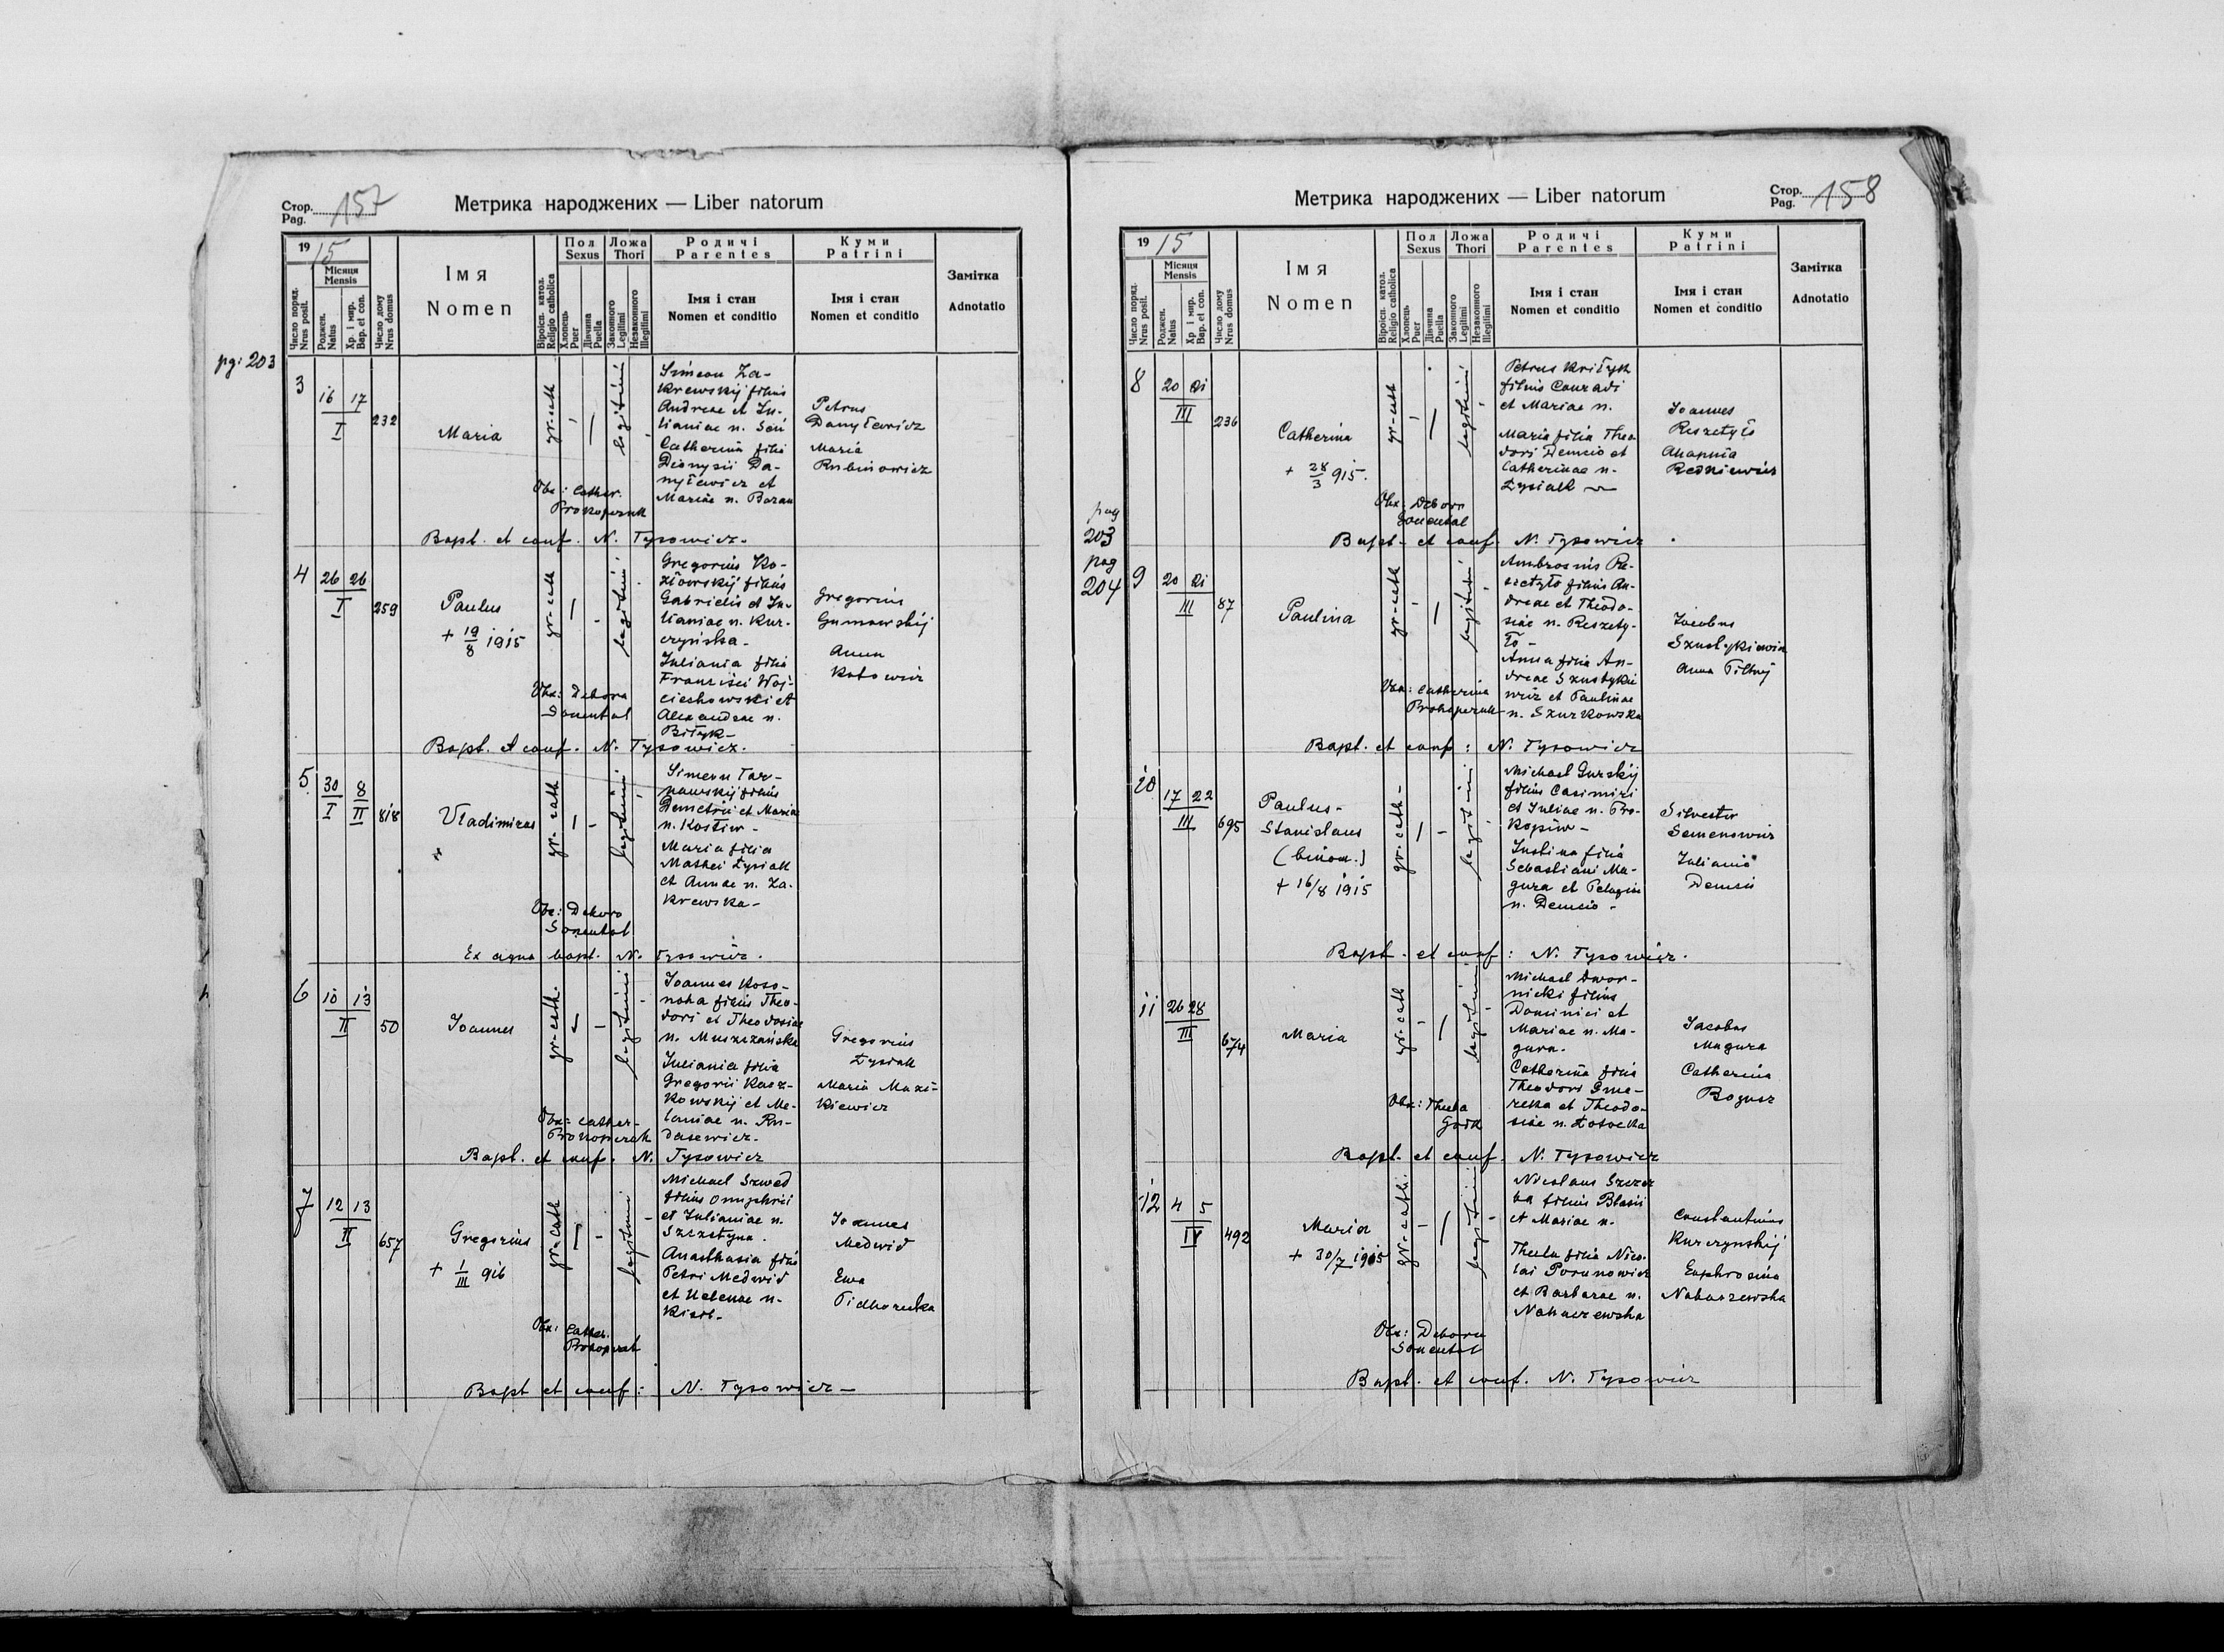 Стор.
Pag. 157
Метрика народжених — Liber natorum
19 15
Місяця
Mensis
Число поряд.
Nrus posit.
Роджен.
Natus
Хр. і мир.
Bap. et con.
Число дому
Nrus domus
Імя
Nomen
Віроісп. катол.
Religio catholica
Пол
Sexus
Хлопець
Puer
Дівчина
Puella
Ложа
Thori
Законного
Legitimi
Незаконного
Illegitimi
Родичі
Parentes
Імя і стан
Nomen et conditio
Куми
Patrini
Імя і стан
Nomen et conditio
Замітка
Adnotatio
pg: 203
3
16 17
I
232
Maria
gr-cath
legitimi
Simeon Za-
krewskij filius
Andreae et Ju-
lianiae n.
Catherina filia
Dionysii Da-
nyłewicz et
Mariae n. Baran
Petrus
Danyłewicz
Maria
Rubinowicz
Obs: Cather.
Prokopczuk
Bapt. et conf. N. Tysowicz.
4
26 26
I
259
Paulus
+ 19/8 1915
gr-cath
legitimi
Gregorius Ko-
złowskij filius
Gabrielis et Ju-
lianiae n. Kur-
czyńska-
Juliania filia
Francisci Woj-
ciechowski et
Alexandrae n.
Biłyk-
Gregorius
Gumowskij
Anna
Kotowicz
Obs: Debora
Sonental
Bapt. et conf. N. Tysowicz.
5
30 8
I II
818
Vladimirus
gr-cath
legitimi
Simeon Tar-
nawskij filius
Demetrii et Mariae
n. Kostiw-
Maria filia
Mathei Łysiak
et Annae n. Za-
krewska-
Obs: Debora
Sonental
Ex aqua bapt. N. Tysowicz.
6
10 13
II
50
Joannes
gr-cath.
legitimi
Joannes Koso-
noha filius Theo-
dori et Theodosiae
n. Muszczańska
Juliania filia
Gregorii Kacz-
kowskij et Me-
laniae n. Ru-
dasewicz-
Gregorius
Łysiak
Maria Maxi-
kiewicz
Obs: Cather-
Prokopczuk
Bapt. et conf. N. Tysowicz
7
12 13
II
657
Gregorius
+ 1/III 916
gr-cath
legitimi
Michael Szwed
filius Onuphrii
et Julianiae n.
Szczetyna.
Anasthasia filia
Petri Medwid
et Helenae n.
Joannes
Medwid
Ewa
Pidhorecka
Obs: Cather.
Prokopczuk
Bapt et conf: N. Tysowicz-
Метрика народжених — Liber natorum
Стор.
Pag. 158
19 15
Місяця
Mensis
Число поряд.
Nrus posit.
Роджен.
Natus
Хр. і мир.
Bap. et con.
Число дому
Nrus domus
Імя
Nomen
Віроісп. катол.
Religio catholica
Пол
Sexus
Хлопець
Puer
Дівчина
Puella
Ложа
Thori
Законного
Legitimi
Незаконного
Illegitimi
Родичі
Parentes
Імя і стан
Nomen et conditio
Куми
Patrini
Імя і стан
Nomen et conditio
Замітка
Adnotatio
8
20 21
III
236
Catherina
+ 28/3 915.
gr-cath
legitimi
Petrus
filius Conradi
et Mariae n.
Maria filia Theo
dori Demcio et
Catherinae n.
Łysiak
Joannes
Reszetyło
Redkiewicz
Obs: Debora
Sonental
Bapt. et conf. N. Tysowicz
pag
203
pag
204
9
20 21
III
87
Paulina
gr-cath
legitimi
Ambrosius Re-
szetyło filius An-
dreae et Theodo-
siae n. Reszety-
ło-
Anna filia An-
dreae Szustykie
wicz et Paulinae
n. Szurkowska
Jacobus
Szustykiewicz
Anna
Obs: Catherina
Prokopczuk
Bapt. et conf: N. Tysowicz
10
17 22
III
695
Paulus-
Stanislaus
(binom.)
+ 16/8 1915
gr-cath-
legitimi
Michael Gurskij
filius Casimiri
et Juliae n. Pro-
kopiw-
Justina filia
Sebastiani Ma-
gura et Pelagiae
n. Demcio-
Silvester
Semenowicz
Juliania
Demcio
Bapt. et conf: N. Tysowicz.
11
26 28
III
674
Maria
gr-cath
legitimi
Michael Dwor-
nicki filius
Dominici et
Mariae n. Ma-
gura.
Catharina filia
Theodori Gme-
reka et Theodo-
siae n. Łotocka
Jacobus
Magura
Catherina
Bogusz
Obs: Thecla
Bapt. et conf. N. Tysowicz
12
4 5
IV
492
Maria
+ 30/7 1915
gr-cath.
legitimi
Nicolaus Szczer
ba filius Blasii
et Mariae n.
Thecla filia Nico-
lai Porunowicz
et Barbarae n.
Nahaczewska
Constantinus
Kurczynskij
Euphrosina
Nahaczewska
Obs: Debora
Sonental
Bapt. et conf. N. Tysowicz